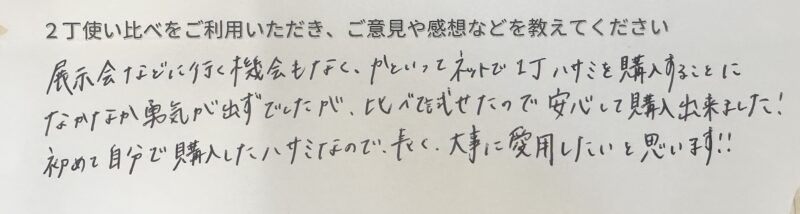 2丁使い比べをご利用いただき、ご意見や感想などを教えてください
展示会などに行く機会もなく、かといってネットで1丁ハサミを購入することに
なかなか勇気が出ずでしたが、比べて試せたので安心して購入出来ました!
初めて自分で購入したハサミなので、長く、大事に愛用したいと思います!!